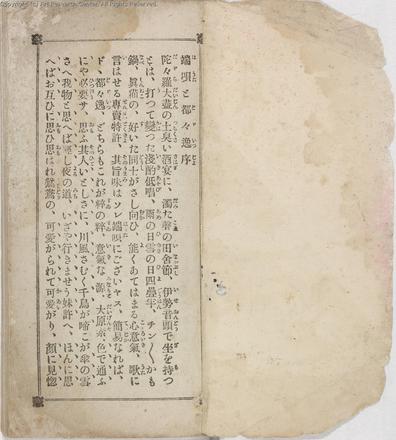 Copyright (c) Art Research Center. All Rights Reserved.
端唄と都々逸序
陀々羅大盡の土臭い酒宴に、濁た聲の田舍節、伊勢音頭で坐を持つ
とは、打つて變つた淺酌低唱、雨の日雪の日四疊半、チン〱かも
鍋、眞猫の、好いた同士がさし向ひ、能くあてはまる心意氣、歌に
言はせる專賣特許、其旨味はソレ端唄にございヤス、簡易なれば、
ドヽ都々逸、どちらもこれが粹の粹、意氣な源、大原 色で通ふ
にや必要サ、思ふ其人いとしさに、川風さむく千鳥が啼こが傘の雪
さへ我物と思へば し夜の道、いざや行きませう妹許へ、ほんに思
へばお互ひに思ひ思はれ鴛鴦の、可愛がられて可愛がり、顏に見惚